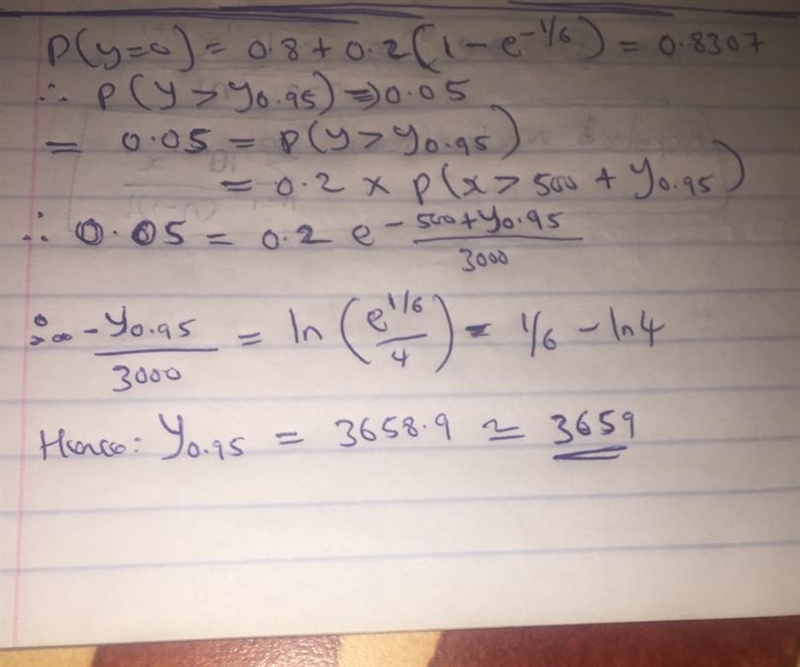 P(y=0) = 0.8 + 0.2(1 - e^-1/6) = 0.8307
∴ P(Y > y0.95) => 0.05
= 0.05 = P(y > y0.95)
= 0.2 × P(x > 500 + y0.95)
∴ 0.05 = 0.2 e^-(500+y0.95)/3000
∴ -y0.95/3000 = ln(e^1/6/4) = 1/6 - ln4
Hence: Y0.95 = 3658.9 ≃ 3659